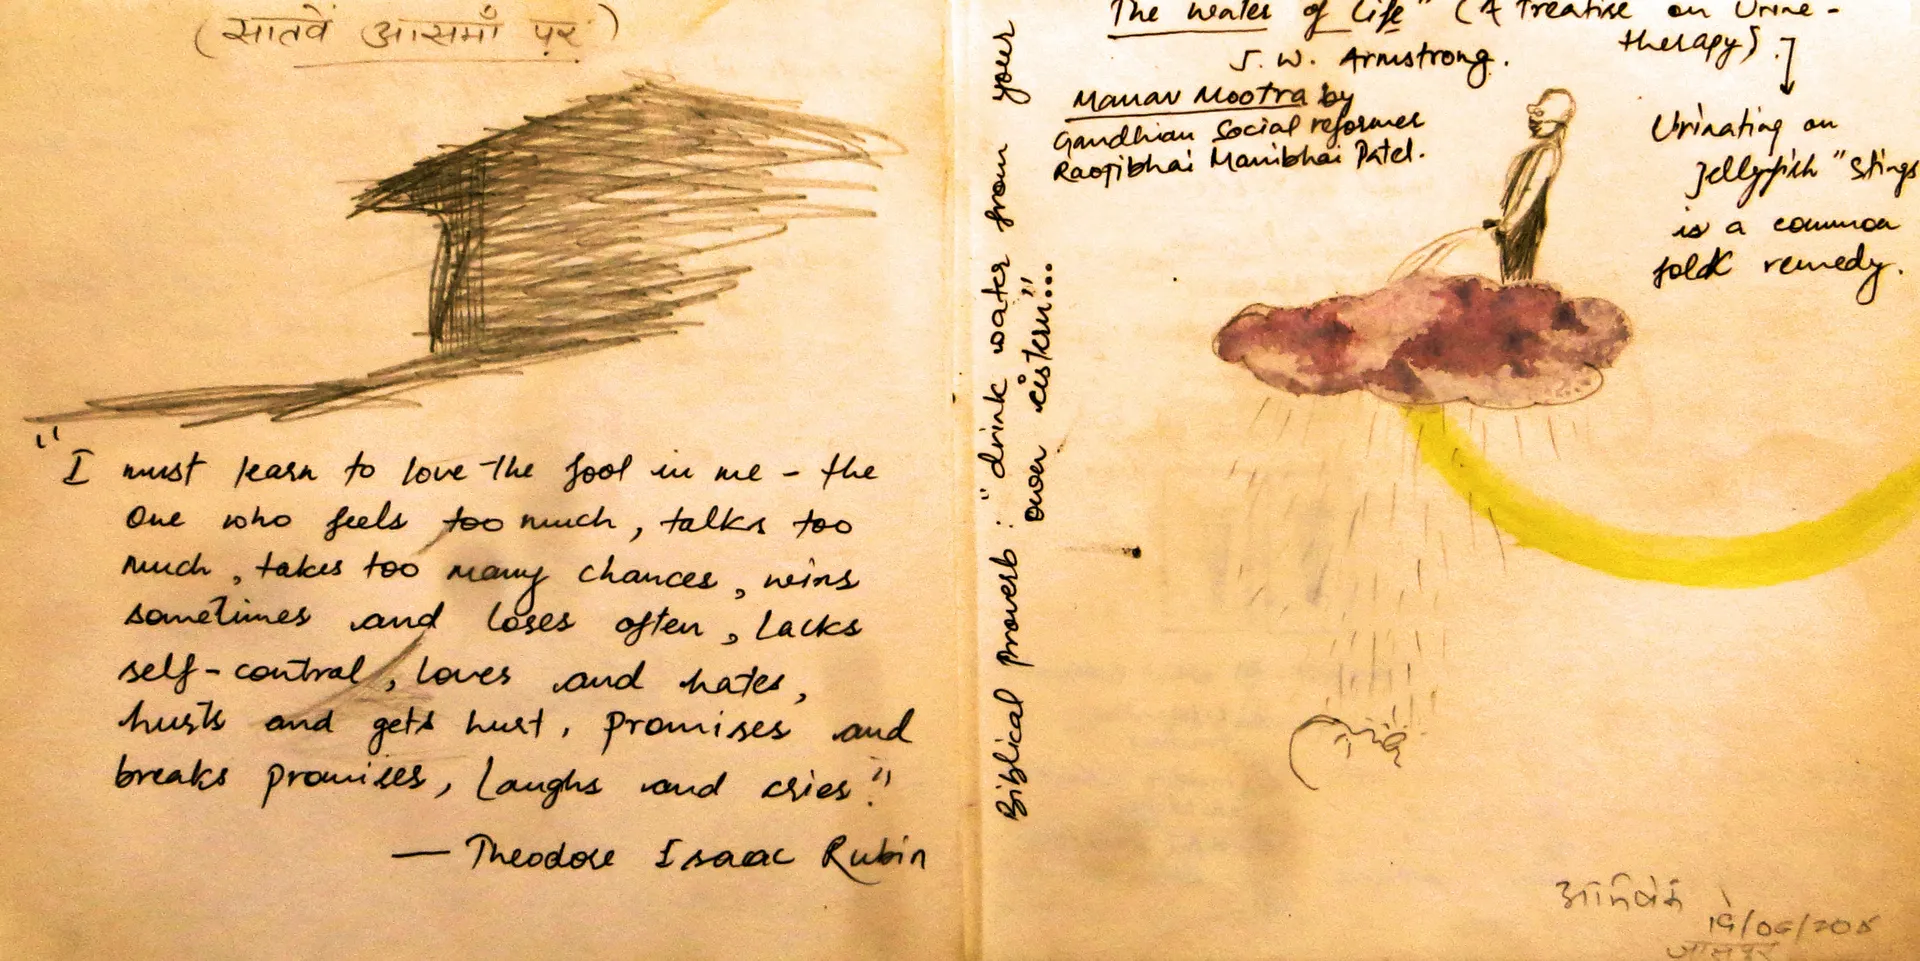 (सातवें आसमाँ पर)
"I must learn to love the fool in me - the
one who feels too much, talks too
much, takes too many chances, wins
sometimes and loses often, lacks
self-control, loves and hates,
hurts and gets hurt, promises and
breaks promises, laughs and cries."
— Theodore Isaac Rubin
Biblical proverb: "drink water from your
own cistern"...
The water of Life" (A Treatise on Urine-
therapy).
J. W. Armstrong.
Manav Mootra by
Gandhian Social reformer
Raojibhai Manibhai Patel.
Urinating on
jellyfish "stings
is a common
folk remedy.